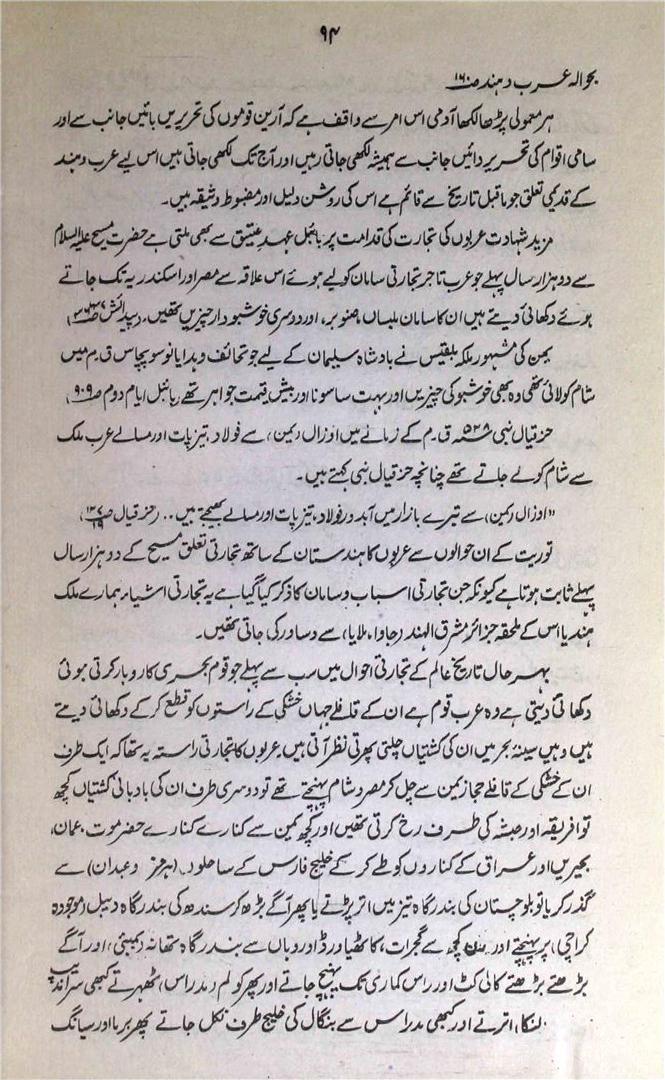 ۹۴
بحوالہ عرب و ہند ص۱۶۰
ہر معمولی پڑھا لکھا آدمی اس امر سے واقف ہے کہ آرین قوموں کی تحریریں بائیں جانب سے اور
سامی اقوام کی تحریر دائیں جانب سے ہمیشہ لکھی جاتی رہیں اور آج تک لکھی جاتی ہیں اس لیے عرب و ہند
کے قدیمی تعلق جو ماقبل تاریخ سے قائم ہے اس کی روشن دلیل اور مضبوط وثیقہ ہیں۔
مزید شہادت عربوں کی تجارت کی قدامت پر بائبل عہد عتیق سے بھی ملتی ہے حضرت مسیح علیہ السلام
سے دو ہزار سال پہلے جو عرب تاجر تجارتی سامان کو لیے ہوئے اس علاقہ سے مصر اور اسکندریہ تک جاتے
ہوئے دکھائی دیتے ہیں ان کا سامان بلساں، صنوبر، اور دوسری خوشبودار چیزیں تھیں۔ (پیدائش
یمن کی مشہور ملکہ بلقیس نے بادشاہ سلیمان کے لیے جو تحائف و ہدایا نو سو پچاس ق۔م میں
شام کو لائی تھی وہ بھی خوشبو کی چیزیں اور بہت سا سونا اور بیش قیمت جواہر تھے (بائبل ایام دوم ص۹۰۹)
حزقیال نبی ۵۲۸ ق۔م کے زمانے میں اوزال (یمن) سے فولاد، تیزپات اور مسالے عرب ملک
سے شام کو لے جاتے تھے چنانچہ حزقیال نبی کہتے ہیں۔
"اوزال (یمن) سے تیرے بازار میں آبدار فولاد، تیزپات اور مسالے بھیجتے ہیں.. (حزقیال
توریت کے ان حوالوں سے عربوں کا ہندستان کے ساتھ تجارتی تعلق مسیح کے دو ہزار سال
پہلے ثابت ہوتا ہے کیونکہ جن تجارتی اسباب و سامان کا ذکر کیا گیا ہے یہ تجارتی اشیاء ہمارے ملک
ہند یا اس کے ملحقہ جزائر مشرق الہند (جاوا، ملایا) سے دساور کی جاتی تھیں۔
بہر حال تاریخ عالم کے تجارتی احوال میں سب سے پہلے جو قوم بحری کاروبار کرتی ہوئی
دکھائی دیتی ہے وہ عرب قوم ہے ان کے قافلے جہاں خشکی کے راستوں کو قطع کرکے دکھائی دیتے
ہیں وہیں سینۂ بحر میں ان کی کشتیاں چلتی پھرتی نظر آتی ہیں عربوں کا تجارتی راستہ یہ تھا کہ ایک طرف
ان کے خشکی کے قافلے حجاز یمن سے چل کر مصر و شام پہنچتے تھے تو دوسری طرف ان کی بادبانی کشتیاں کچھ
تو افریقہ اور حبشہ کی طرف رخ کرتی تھیں اور کچھ یمن سے کنارے کنارے حضرموت، عمان،
بحیرین اور عراق کے کناروں کو طے کرکے خلیج فارس کے ساحلوں (ہرمز و عبدان) سے
گذر کر یا تو بلوچستان کی بندرگاہ تیز میں اتر پڑتے یا پھر آگے بڑھ کر سندھ کی بندرگاہ دیبل (موجودہ
کراچی) پر پہنچتے اور کچھ سے گجرات، کاٹھیاورڈ اور وہاں سے بندرگاہ تھانہ (بمبئی)، اور آگے
بڑھتے بڑھتے کالی کٹ اور راس کماری تک پہنچ جاتے اور پھر کولم (مدراس) ٹھہرتے کبھی سراندیپ
لنکا، اترتے اور کبھی مدراس سے بنگال کی خلیج طرف نکل جاتے پھر برما اور سیانگ